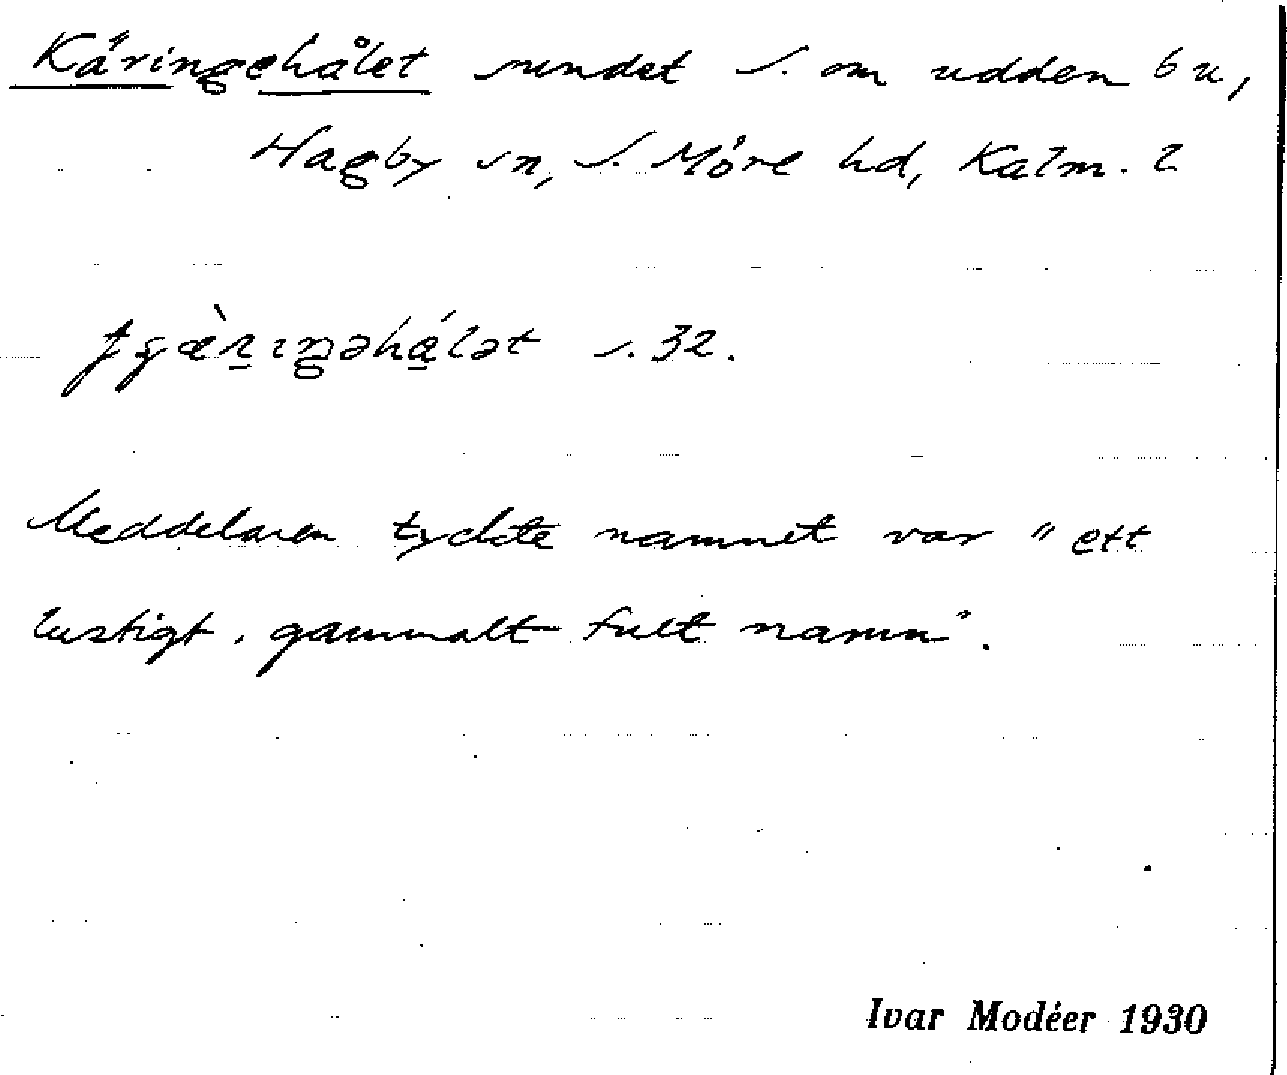 Käringehålet sundet S. om udden 6 u,
Hagby sn, S. Möre hd, Kalm. l
s. 32.
Meddelaren tyckte namnet var "ett
lustigt, gammalt fult namn".
Ivar Modéer 1930